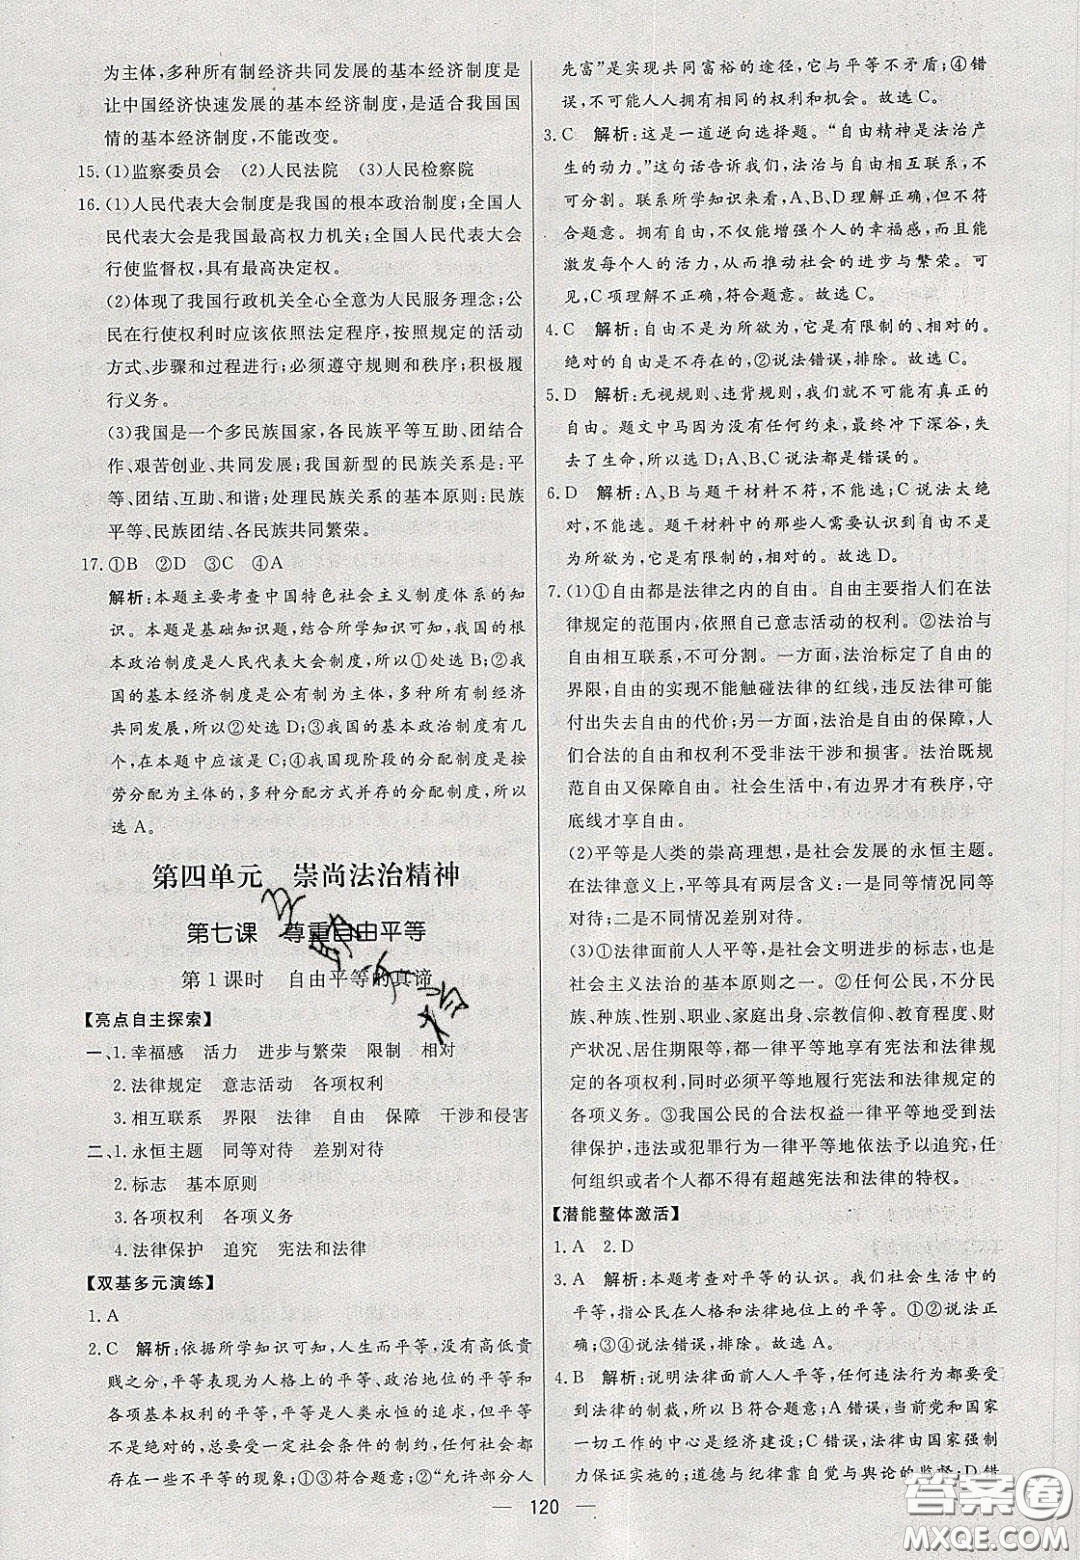 为主体,多种所有制经济共同发展的基本经济制度是
让中国经济快速发展的基本经济制度,是适合我国国
情的基本经济制度,不能改变。
15.(1)监察委员会 (2)人民法院 (3)人民检察院
16.(1)人民代表大会制度是我国的根本政治制度;全国人
民代表大会是我国最高权力机关;全国人民代表大会
行使监督权,具有最高决定权。
(2)体现了我国行政机关全心全意为人民服务理念;公
民在行使权利时应该依照法定程序,按照规定的活动
方式、步骤和过程进行;必须遵守规则和秩序;积极履
行义务。
(3)我国是一个多民族国家,各民族平等互助、团结合
作、艰苦创业、共同发展;我国新型的民族关系是:平
等、团结、互助、和谐;处理民族关系的基本原则:民族
平等、民族团结、各民族共同繁荣。
17.①B ②D ③C ④A
解析:本题主要考查中国特色社会主义制度体系的知
识。本题是基础知识题,结合所学知识可知,我国的根
本政治制度是人民代表大会制度,所以①处选B;②我
国的基本经济制度是公有制为主体,多种所有制经济
共同发展,所以②处选D;③我国的基本政治制度有几
个,在本题中应该是C;④我国现阶段的分配制度是按
劳分配为主体的,多种分配方式并存的分配制度,所以
选A。
第四单元 崇尚法治精神
第七课 尊重自由平等
第1课时 自由平等的真谛
【亮点自主探索】
一、1.幸福感 活力 进步与繁荣 限制 相对
2.法律规定 意志活动 各项权利
3.相互联系 界限 法律 自由 保障 干涉和侵害
二、1.永恒主题 同等对待 差别对待
2.标志 基本原则
3.各项权利 各项义务
4.法律保护 追究 宪法和法律
【双基多元演练】
1.A
2.C 解析:依据所学知识可知,人生而平等,没有高低贵
贱之分,平等表现为人格上的平等、政治地位的平等和
各项基本权利的平等,平等是人类永恒的追求,但平等
不是绝对的,总要受一定社会条件的制约,任何社会都
存在一些不平等的现象;①③符合题意;②“允许部分人
先富”是实现共同富裕的途径,它与平等不矛盾;④错
误,不可能人人拥有相同的权利和机会。故选C。
3.C 解析:这是一道逆向选择题。“自由精神是法治产
生的动力。”这句话告诉我们,法治与自由相互联系,不
可分割。联系所学知识来看,A、B、D理解正确,但不符
合题意。拥有自由,不仅能增强个人的幸福感,而且能
激发每个人的活力,从而推动社会的进步与繁荣。可
见,C项理解不正确,符合题意。故选C。
4.C 解析:自由不是为所欲为,它是有限制的、相对的。
绝对的自由是不存在的,②说法错误,排除。故选C。
5.D 解析:无视规则、违背规则,我们就不可能有真正的
自由。题文中马因为没有任何约束,最终冲下深谷,失
去了生命,所以选D;A、B、C说法都是错误的。
6.D 解析:A、B与题干材料不符,不能选;C说法太绝
对,不能选。题干材料中的那些人需要认识到自由不是
为所欲为,它是有限制的,相对的。故选D。
7.(1)①自由都是法律之内的自由。自由主要指人们在法
律规定的范围内,依照自己意志活动的权利。②法治与
自由相互联系,不可分割。一方面,法治标定了自由的
界限,自由的实现不能触碰法律的红线,违反法律可能
付出失去自由的代价;另一方面,法治是自由的保障,人
们合法的自由和权利不受非法干涉和损害。法治既规
范自由又保障自由。社会生活中,有边界才有秩序,守
底线才享自由。
(2)平等是人类的崇高理想,是社会发展的永恒主题。
在法律意义上,平等具有两层含义:一是同等情况同等
对待;二是不同情况差别对待。
(3)①法律面前人人平等,是社会文明进步的标志,也是
社会主义法治的基本原则之一。②任何公民,不分民
族、种族、性别、职业、家庭出身、宗教信仰、教育程度、财
产状况、居住期限等,都一律平等地享有宪法和法律规
定的各项权利,同时必须平等地履行宪法和法律规定的
各项义务。③我国公民的合法权益一律平等地受到法
律保护,违法或犯罪行为一律平等地依法予以追究,任
何组织或者个人都不得有超越宪法和法律的特权。
【潜能整体激活】
1.A 2.D
3.A 解析:本题考查对平等的认识。我们社会生活中的
平等,指公民在人格和法律地位上的平等。①②说法正
确;③④说法错误,排除。故选A。
4.B 解析:说明法律面前人人平等,任何违法行为都要
受到法律的制裁,所以B符合题意;A错误,党和国家
一切工作的中心是经济建设;C错误,法律由国家强制
力保证实施的;道德与纪律靠自觉与舆论的监督;D错
120
答案圈
MXQE.COM